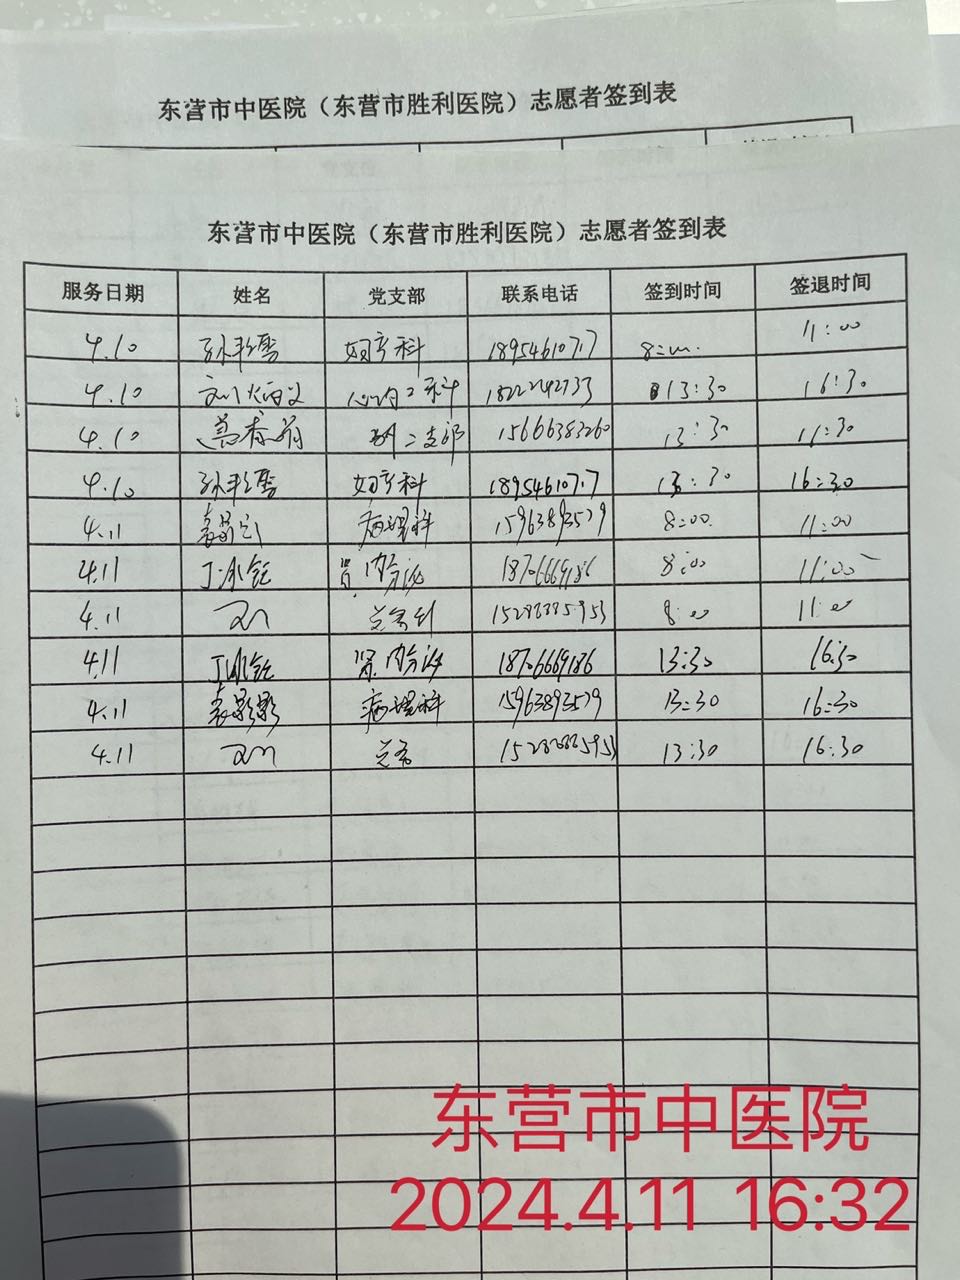 东营市中医院（东营市胜利医院）志愿者签到表
东营市中医院（东营市胜利医院）志愿者签到表
服务日期 姓名 党支部 联系电话 签到时间 签退时间
4.10 妇产科 18954610717 11:00
4.10 心内二科 13:30 16:30
4.10 二支部 15606383260 13:30 11:30
4.10 妇产科 18954610717 13:30 16:30
4.11 病理科 15963893579 8:00 11:00
4.11 丁冰钰 内分泌 18706669186 8:00 11:00
4.11 8:00 11:00
4.11 丁冰钰 内分泌 18706669186 13:30 16:30
4.11 袁影影 病理科 15963893579 13:30 16:30
4.11 13:30 16:30
东营市中医院
2024.4.11 16:32